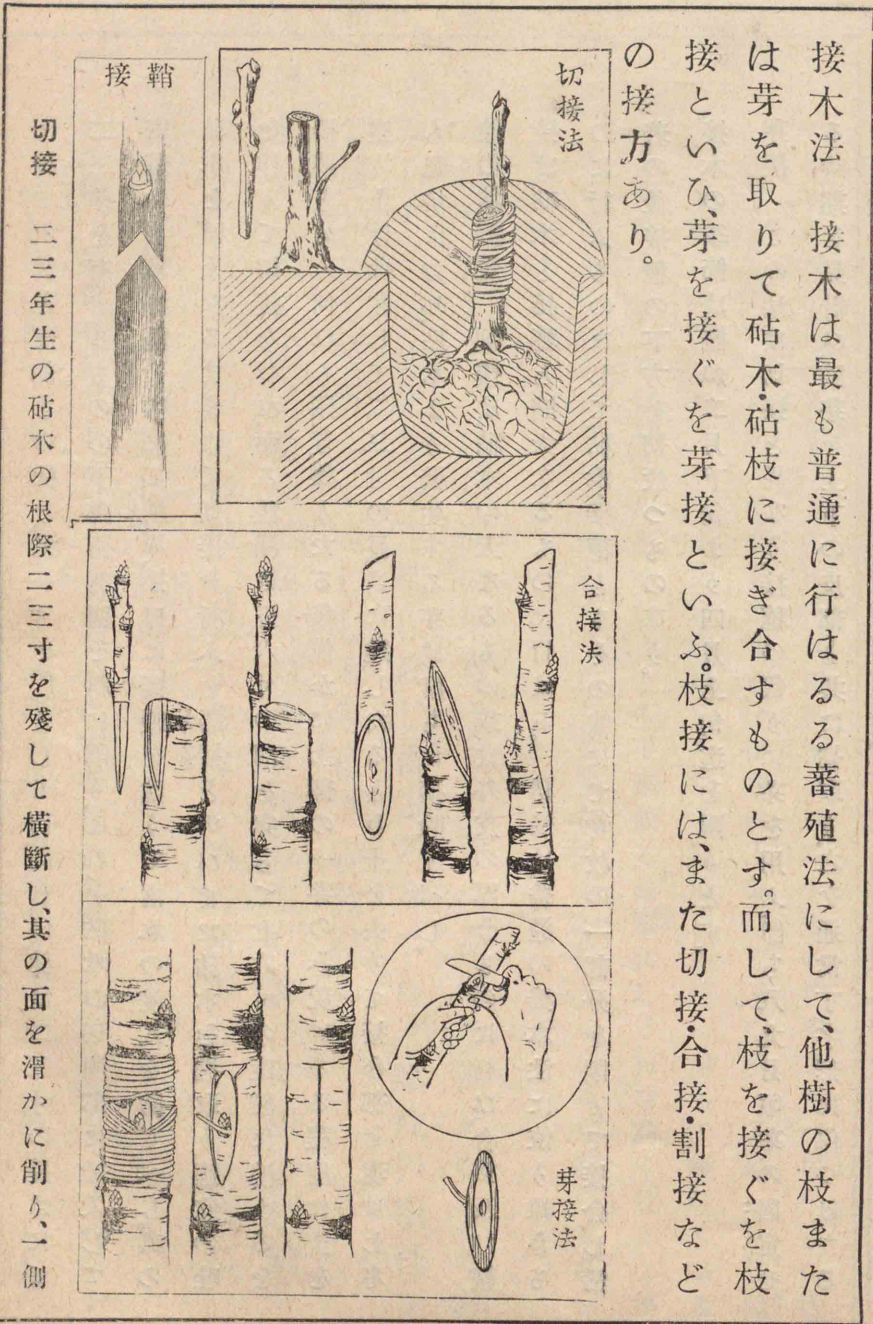 接木法　接木は最も普通に行はるる蕃殖法にして、他樹の枝また
は芽を取りて砧木・砧枝に接ぎ合すものとす。而して、枝を接ぐを枝
接といひ、芽を接ぐを芽接といふ。枝接には、また切接・合接・割接など
の接方あり。
切接法
鞘接
合接法
芽接法
切接　二三年生の砧木の根際二三寸を殘して橫斷し、其の面を滑かに削り、一側